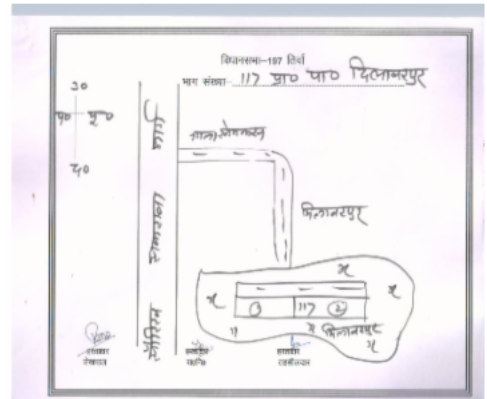 विधानसभा-197 तिर्वा
भाग संख्या- 117 प्रा० पा० दिलावरपुर
उ०
प० पू०
द०
मार्ग
सौरिख
दिलावरपुर
x
x x
① 117 ②
11 x दिलावरपुर
x
हस्ताक्षर
लेखपाल
हस्ताक्षर
हस्ताक्षर
तहसीलदार